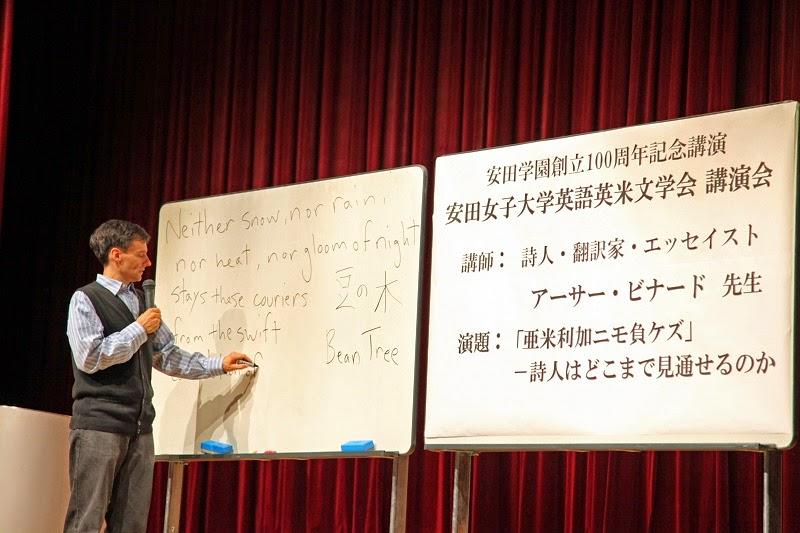 Neither snow, nor rain,
nor heat, nor gloom of night
stays these couriers
from the swift
豆の木
Bean Tree
安田学園創立100周年記念講演
安田女子大学英語英米文学会 講演会
講師： 詩人・翻訳家・エッセイスト
アーサー・ビナード 先生
演題：「亜米利加ニモ負ケズ」
－詩人はどこまで見通せるのか